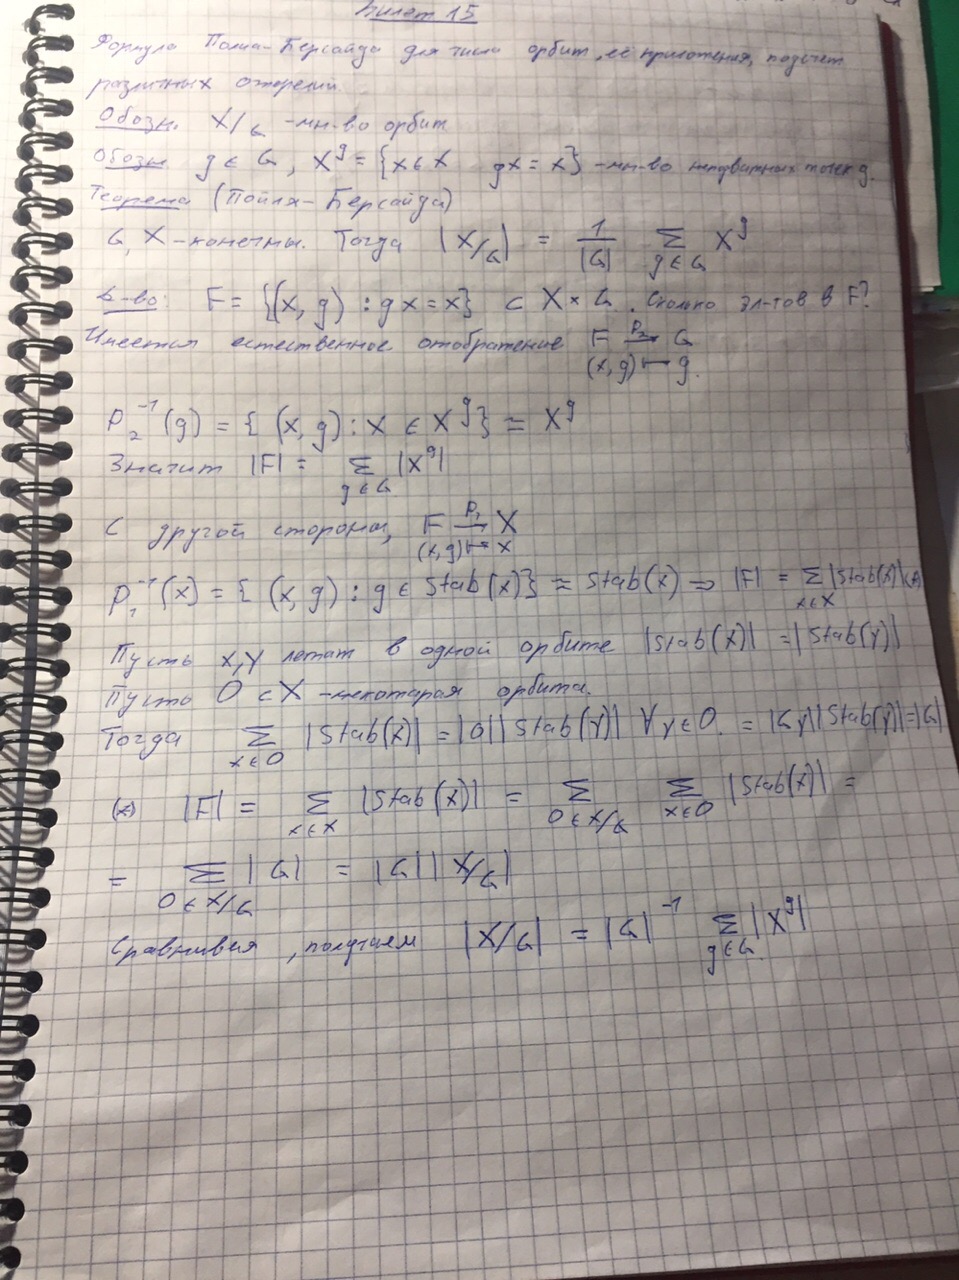 Билет 15
Формула Полиа-Бернсайда для числа орбит, её приложения, подсчет
различных ожерелий.
Обозн. X/G - мн-во орбит
Обозн g ∈ G, X^g = {x ∈ X gx = x} - мн-во неподвижных точек g.
Теорема (Пойля-Бернсайда)
G, X - конечны. Тогда |X/G| = 1/|G| Σ_{g∈G} X^g
Д-во: F = {(x, g) : gx = x} ⊂ X × G. Сколько эл-тов в F?
Имеется естественное отображение F →^{P_2} G
(x, g) ↦ g.
P_2^{-1}(g) = {(x, g) : x ∈ X^g} ≃ X^g
Значит |F| = Σ_{g∈G} |X^g|
С другой стороны, F →^{P_1} X
(x, g) ↦ x
P_1^{-1}(x) = {(x, g) : g ∈ Stab(x)} ≃ Stab(x) ⇒ |F| = Σ_{x∈X} |Stab(x)| (*)
Пусть x, y лежат в одной орбите |Stab(x)| = |Stab(y)|
Пусть O ⊂ X - некоторая орбита.
Тогда Σ_{x∈O} |Stab(x)| = |O||Stab(y)| ∀ y ∈ O. = |Gy||Stab(y)| = |G|
(*) |F| = Σ_{x∈X} |Stab(x)| = Σ_{O∈X/G} Σ_{x∈O} |Stab(x)| =
= Σ_{O∈X/G} |G| = |G||X/G|
Сравнивая, получаем |X/G| = |G|^{-1} Σ_{g∈G} |X^g|